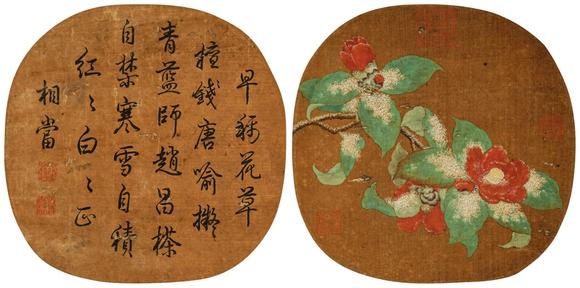 早稱花草
擅錢唐喻擬
青藍師趙昌
自禁寒雪自積
紅〻白〻正
相當